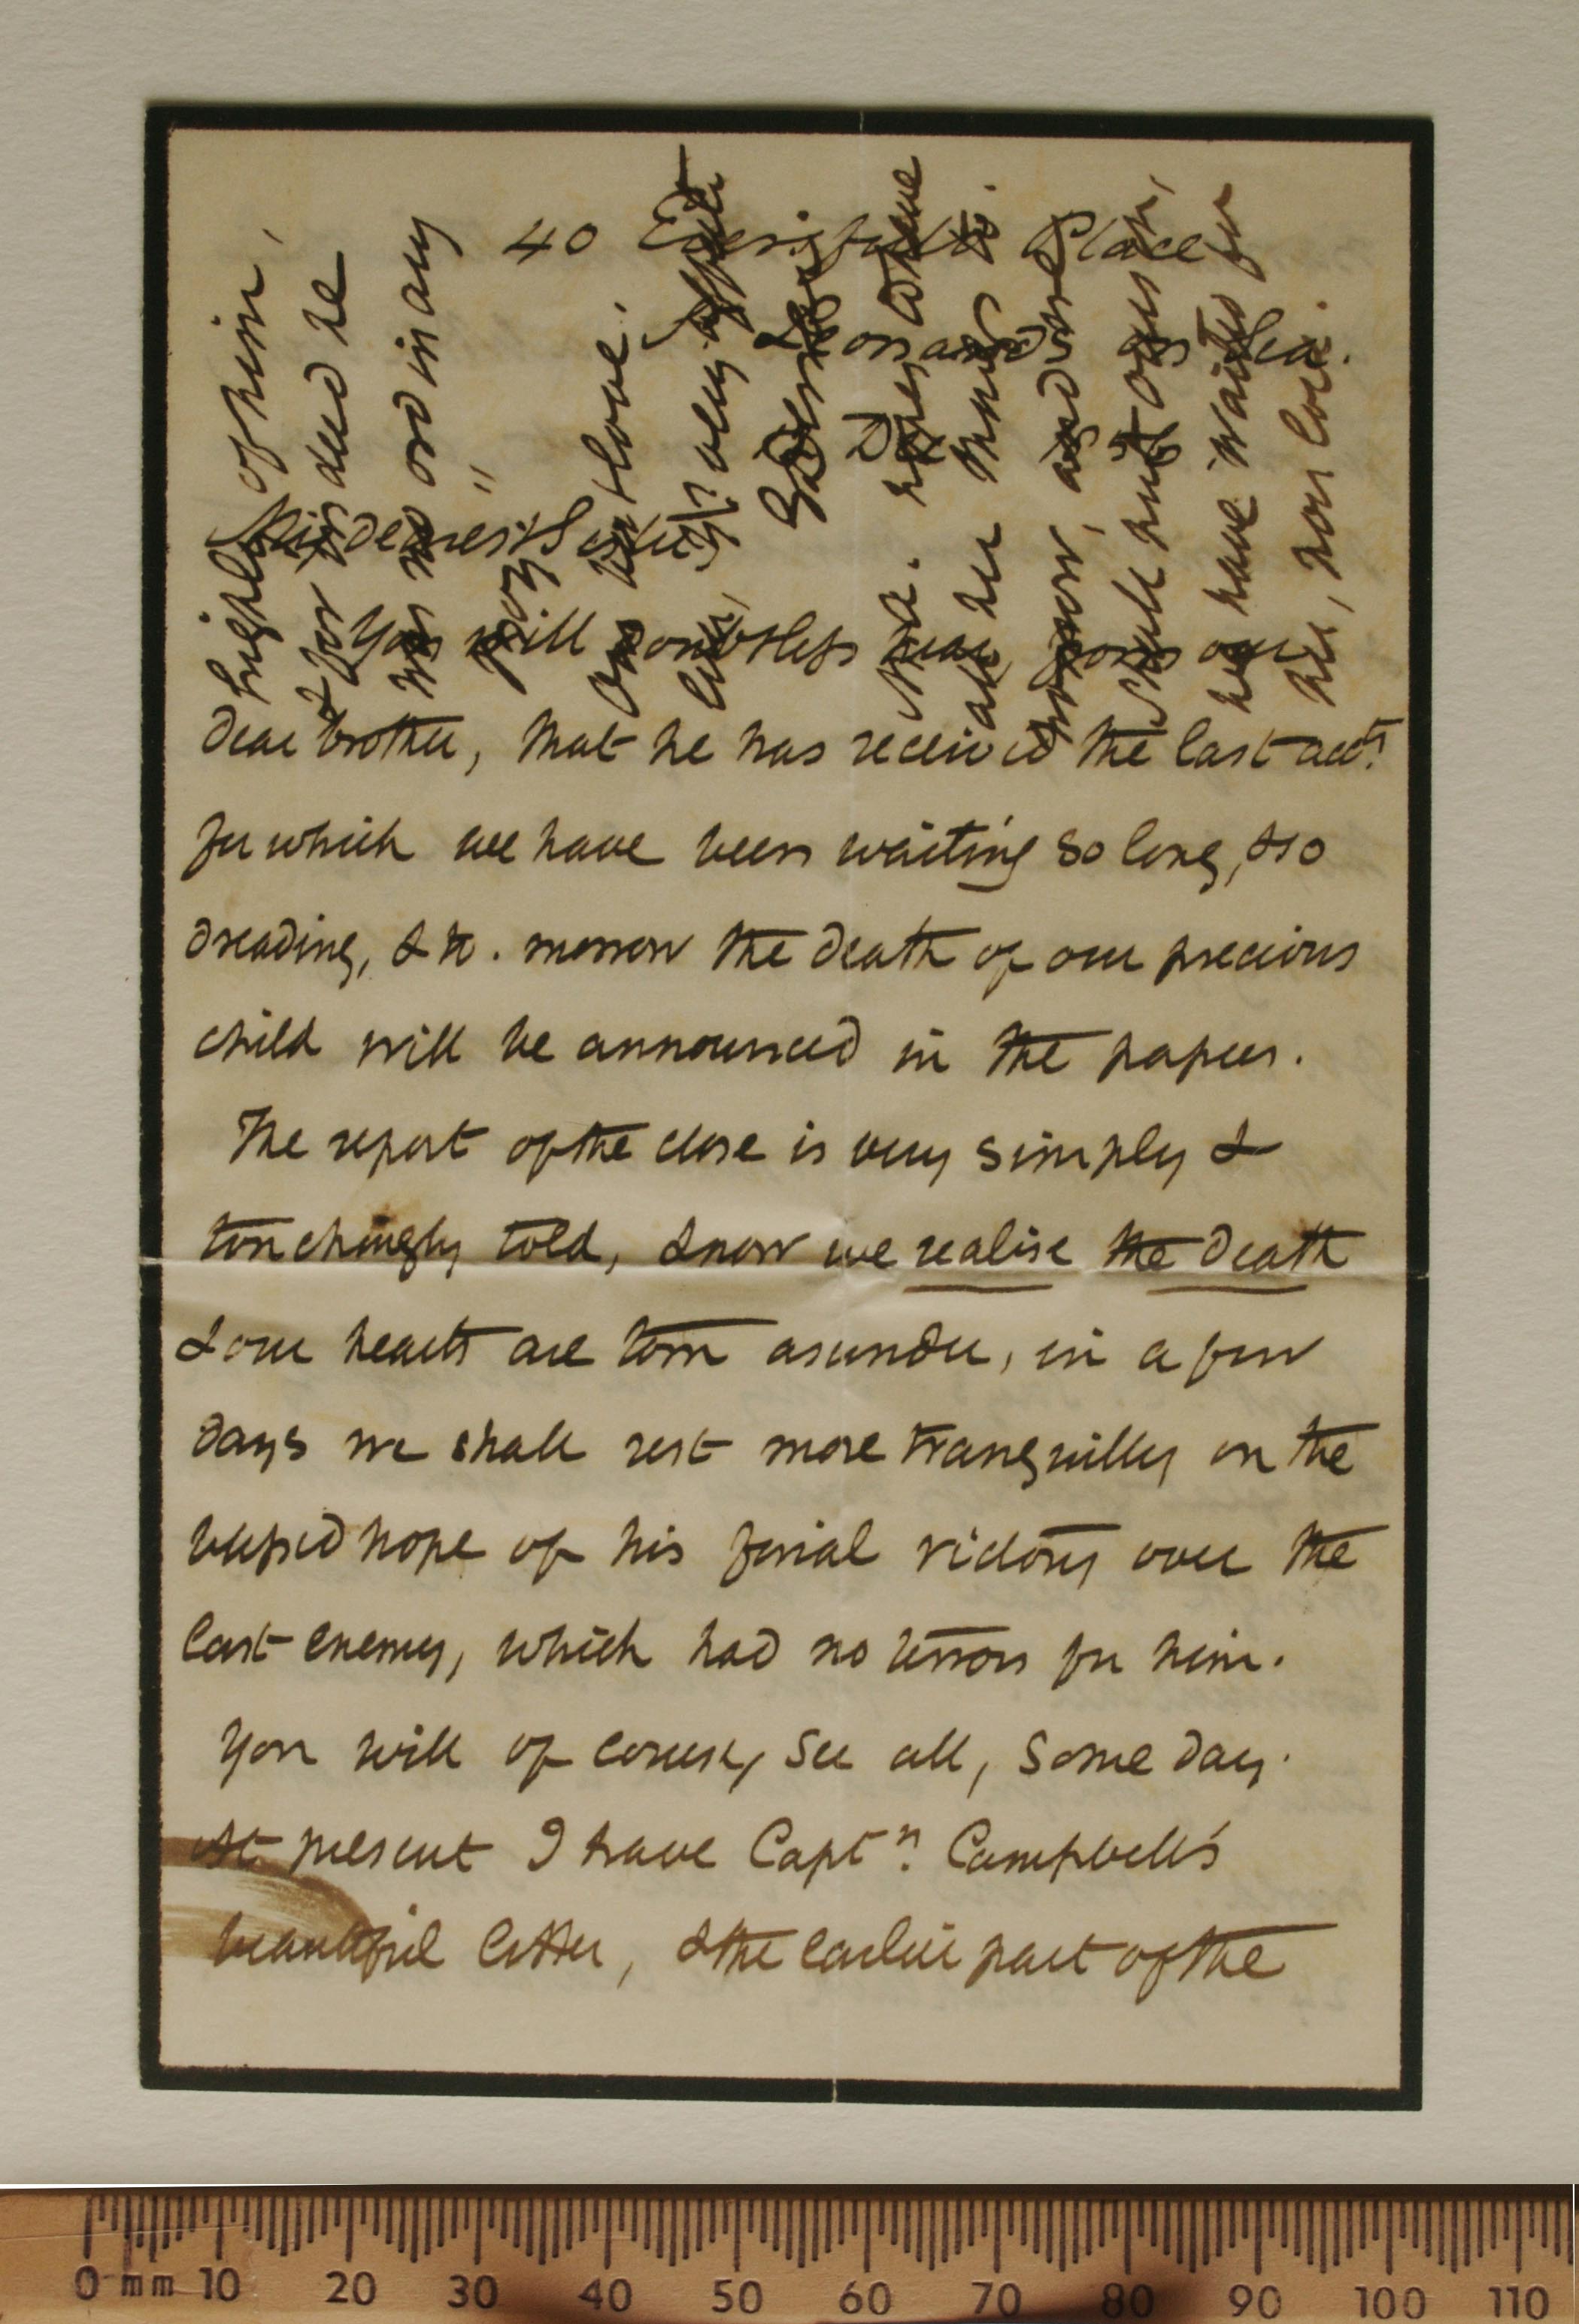 40 Eversfield Place
St Leonards on Sea.
Dec
My dearest Sister
You will doubtless hear, from our
dear brother, that he has received the last acct.
for which we have been waiting so long, & so
dreading, & to.morrow the death of our precious
child will be announced in the papers.
The report of the close is very simply &
touchingly told, & now we realise the death
& our hearts are torn asunder, in a few
days we shall rest more tranquilly on the
blessed hope of his finial victory over the
last enemy, which had no terrors for him.
You will of course, see all, some day.
At present I have Captn. Campbell's
beautiful letter, & the earlier part of the
highly of him,
& for indeed he
was no ord in any
way "
One love.
ever, yr. very affect
Sister
Mrs. hopes to see
all her
and we
shall hunt
have waited for
her, how long.